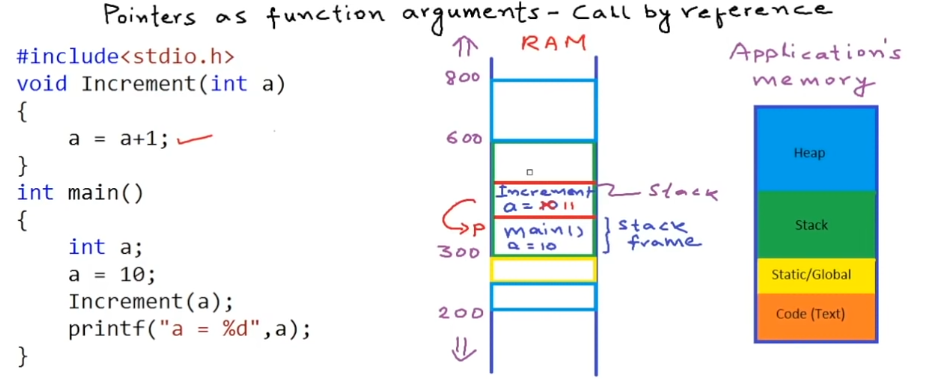 Pointers as function arguments - Call by reference
#include<stdio.h>
void Increment(int a)
{
a = a+1;
}
int main()
{
int a;
a = 10;
Increment(a);
printf("a = %d",a);
}
RAM
800
600
300
200
Increment
a = 10 11
P
main()
a = 10
Stack
stack
frame
Application's
memory
Heap
Stack
Static/Global
Code (Text)